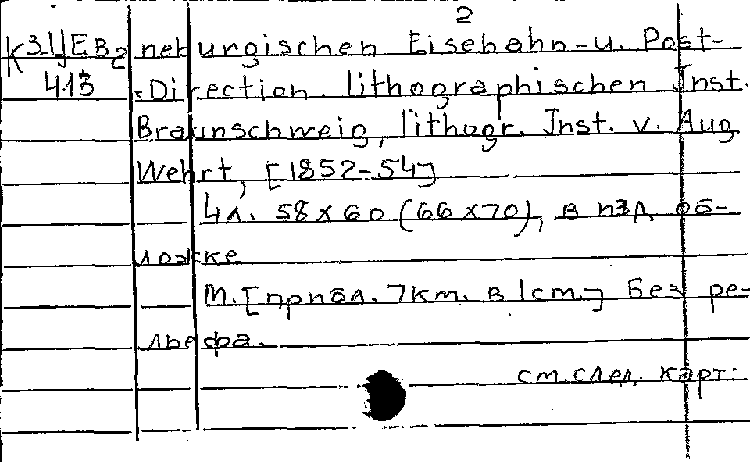 2
К 3.ЦЕв 2 neburgischen Eisebahn-u. Post-
4.13 =Direction lithographischen Inst.
Braunschweig, lithogr. Inst. v. Aug
Wehrt, [1852-54]
4 л. 58 x 60 (66 x 70), в изд. об-
ложке
М. [прибл. 7 km. в 1 cm.] Без ре-
льефа.
см. след. карт.